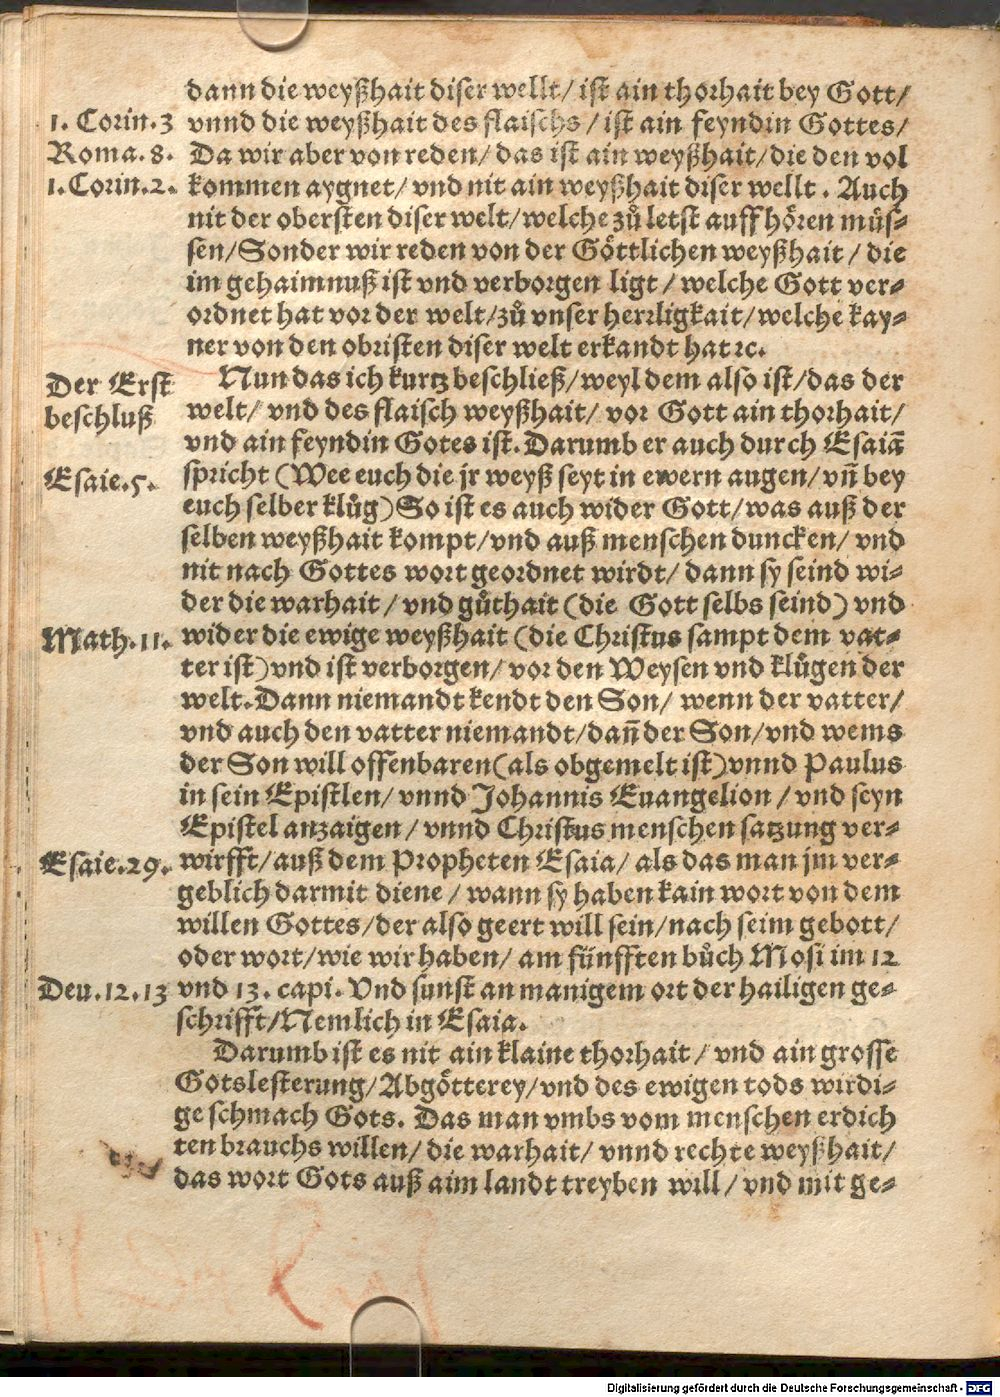 dann die weyßhait diser wellt/ ist ain thorhait bey Gott/
1. Corin. 3 vnnd die weyßhait des flaischs / ist ain feyndin Gottes/
Roma. 8. Da wir aber von reden/ das ist ain weyßhait/ die den vol
1. Corin. 2. kommen aygnet/ vnd nit ain weyßhait diser wellt. Auch
nit der obersten diser welt/ welche zů letst auffhören müs⸗
sen/ Sonder wir reden von der Göttlichen weyßhait / die
im gehaimnuß ist vnd verborgen ligt / welche Gott ver⸗
ordnet hat vor der welt/ zů vnser herrligkait/ welche kay⸗
ner von den obristen diser welt erkandt hat ꝛc.
Der Erst beschluß
Nun das ich kurtz beschließ/ weyl dem also ist/ das der
welt/ vnd des flaisch weyßhait/ vor Gott ain thorhait/
vnd ain feyndin Gotes ist. Darumb er auch durch Esaiā
Esaie. 5. spricht (Wee euch die jr weyß seyt in ewern augen/ vñ bey
euch selber klůg) So ist es auch wider Gott/ was auß der
selben weyßhait kompt/ vnd auß menschen duncken/ vnd
nit nach Gottes wort geordnet wirdt/ dann sy seind wi⸗
der die warhait / vnd gůthait (die Gott selbs seind) vnd
Math. 11. wider die ewige weyßhait (die Christus sampt dem vat⸗
ter ist) vnd ist verborgen/ vor den Weysen vnd klůgen der
welt. Dann niemandt kendt den Son/ wenn der vatter/
vnd auch den vatter niemandt/ dañ der Son/ vnd wems
der Son will offenbaren (als obgemelt ist) vnnd Paulus
in sein Epistlen/ vnnd Johannis Euangelion / vnd seyn
Epistel anzaigen / vnnd Christus menschen satzung ver⸗
Esaie. 29. wirfft/ auß dem Propheten Esaia/ als das man jm ver⸗
geblich darmit diene / wann sy haben kain wort von dem
willen Gottes/ der also geert will sein/ nach seim gebott/
oder wort/ wie wir haben/ am fünfften bůch Mosi im 12
Deu. 12. 13 vnd 13. capi. Vnd sunst an manigem ort der hailigen ge⸗
schrifft/ Nemlich in Esaia.
Darumb ist es nit ain klaine thorhait / vnd ain grosse
Gotslesterung/ Abgötterey/ vnd des ewigen tods wirdi⸗
ge schmach Gots. Das man vmbs vom menschen erdich
ten brauchs willen/ die warhait/ vnnd rechte weyßhait/
das wort Gots auß aim landt treyben will / vnd mit ge⸗
Digitalisierung gefördert durch die Deutsche Forschungsgemeinschaft - DFG